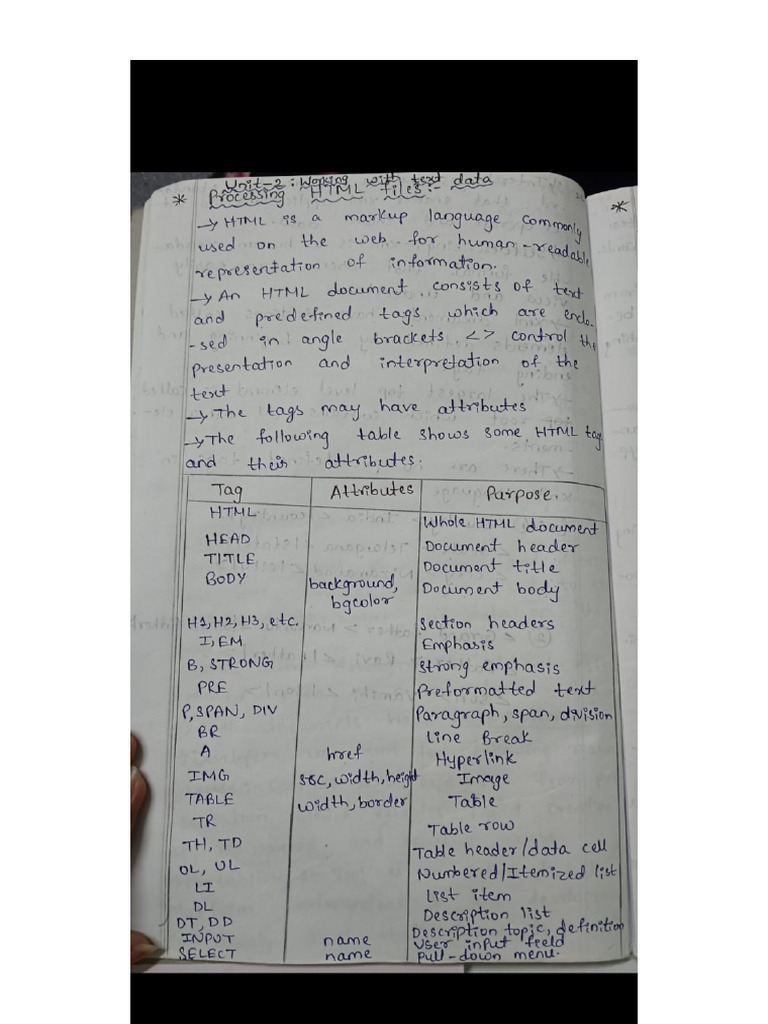 Unit-2 : Working with text data
* Processing HTML files:-
→ HTML is a markup language commonly
used on the web for human-readable
representation of information.
→ An HTML document consists of text
and predefined tags which are enclo-
-sed in angle brackets <> control the
presentation and interpretation of the
text
→ The tags may have attributes
→ The following table shows some HTML tag
and their attributes:
Tag Attributes Purpose.
HTML Whole HTML document
HEAD Document header
TITLE Document title
BODY background, Document body
bgcolor
H1, H2, H3, etc. Section headers
I, EM Emphasis
B, STRONG Strong emphasis
PRE Preformatted text
P, SPAN, DIV Paragraph, span, division
BR Line Break
A href Hyperlink
IMG src, width, height Image
TABLE width, border Table
TR Table row
TH, TD Table header/data cell
OL, UL Numbered/Itemized list
LI List item
DL Description list
DT, DD Description topic, definition
INPUT name User input field
SELECT name Pull-down menu.
*